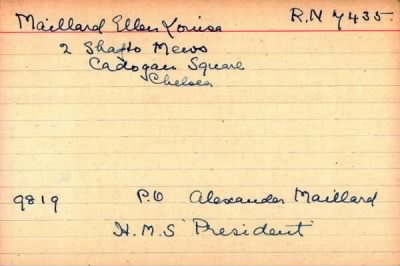 Maillard Ellen Louisa R.N 7435.
2 Shafto Mews
Cadogan Square
Chelsea
9819 P.O Alexander Maillard
H.M.S "President"